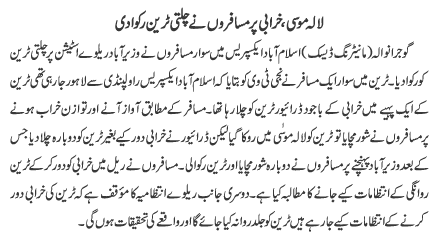 لالہ موسیٰ، خرابی پر مسافروں نے چلتی ٹرین رکوا دی
گوجرانوالہ (مانیٹرنگ ڈیسک) اسلام آباد ایکسپریس میں سوار مسافروں نے وزیر آباد ریلوے اسٹیشن پر چلتی ٹرین
کو رکوا دیا۔ ٹرین میں سوار ایک مسافر نے نجی ٹی وی کو بتایا کہ اسلام آباد ایکسپریس راولپنڈی سے لاہور جا رہی تھی ٹرین
کے ایک پہیے میں خرابی کے باوجود ڈرائیور ٹرین کو چلا رہا تھا۔ مسافر کے مطابق آواز آنے اور توازن خراب ہونے
پر مسافروں نے شور مچایا تو ٹرین کو لالہ موسیٰ میں روکا گیا لیکن ڈرائیور نے خرابی دور کیے بغیر ٹرین کو دوبارہ چلا دیا جس
کے بعد وزیر آباد پہنچنے پر مسافروں نے دوبارہ شور مچایا اور ٹرین رکوالی۔ مسافروں نے ریل میں خرابی کو دور کر کے ٹرین
روانگی کے انتظامات کیے جانے کا مطالبہ کیا ہے۔ دوسری جانب ریلوے انتظامیہ کا مؤقف ہے کہ ٹرین کی خرابی دور
کرنے کے انتظامات کیے جا رہے ہیں ٹرین کو جلد روانہ کیا جائے گا اور واقعے کی تحقیقات ہوں گی۔